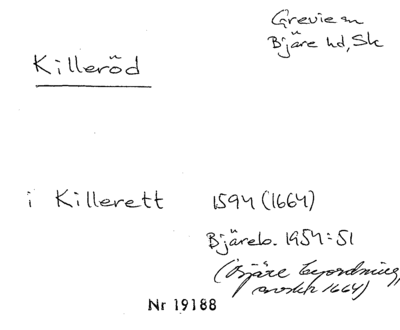 Grevie sn
Bjäre hd, Sk
Killeröd
i Killerett 1594 (1664)
Bjäreb. 1954:51
(Bjäre
1664)
Nr 19188